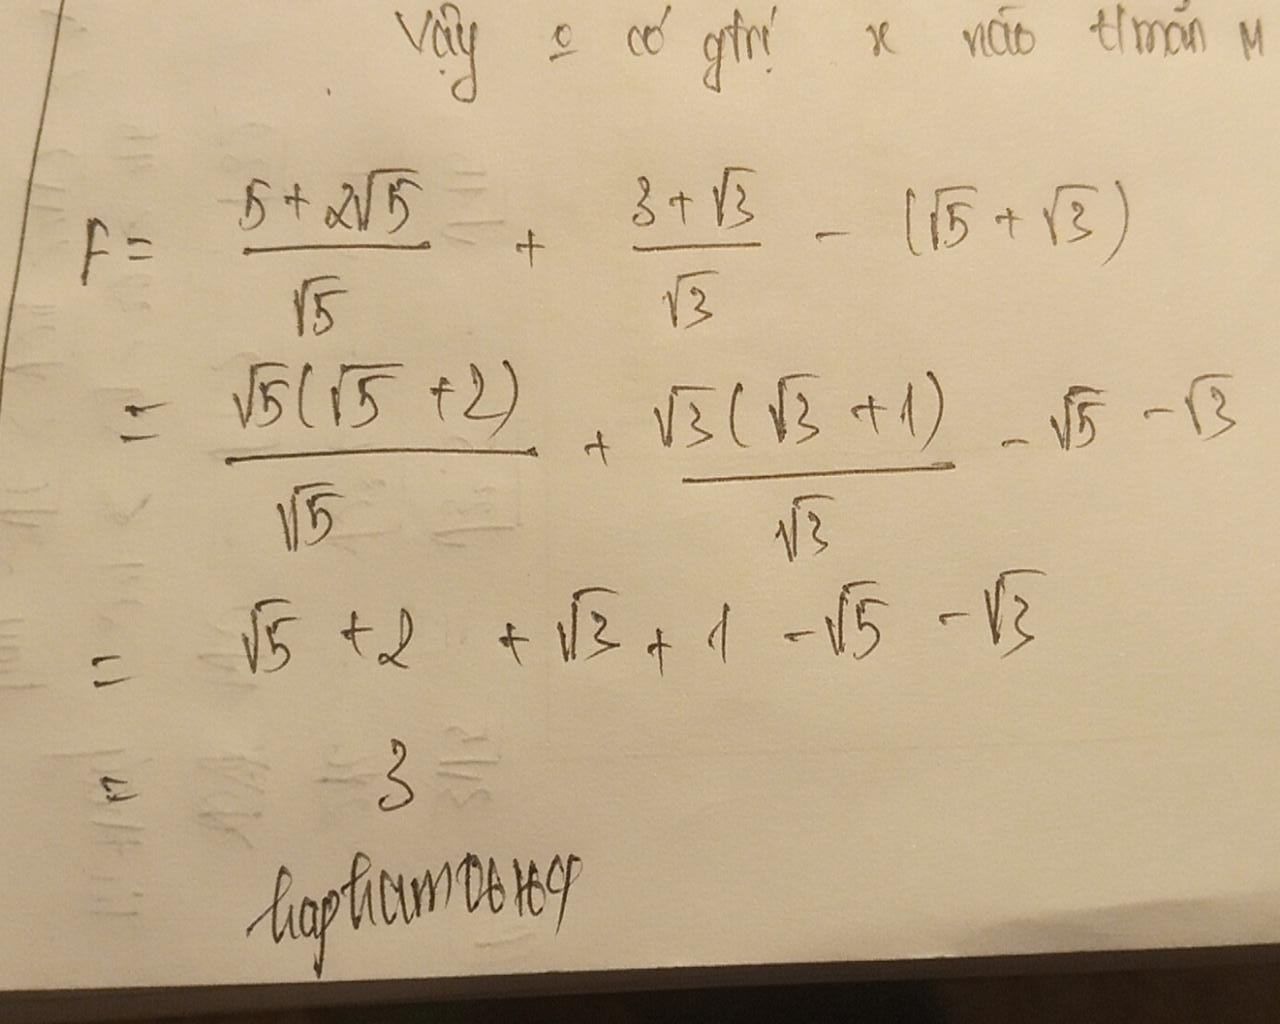 Vậy o có gtrị x nào t/mãn M
F = \frac{5 + 2√5}{√5} + \frac{3 + √3}{√3} - (√5 + √3)
= \frac{√5(√5 + 2)}{√5} + \frac{√3(√3 + 1)}{√3} - √5 - √3
= √5 + 2 + √3 + 1 - √5 - √3
= 3